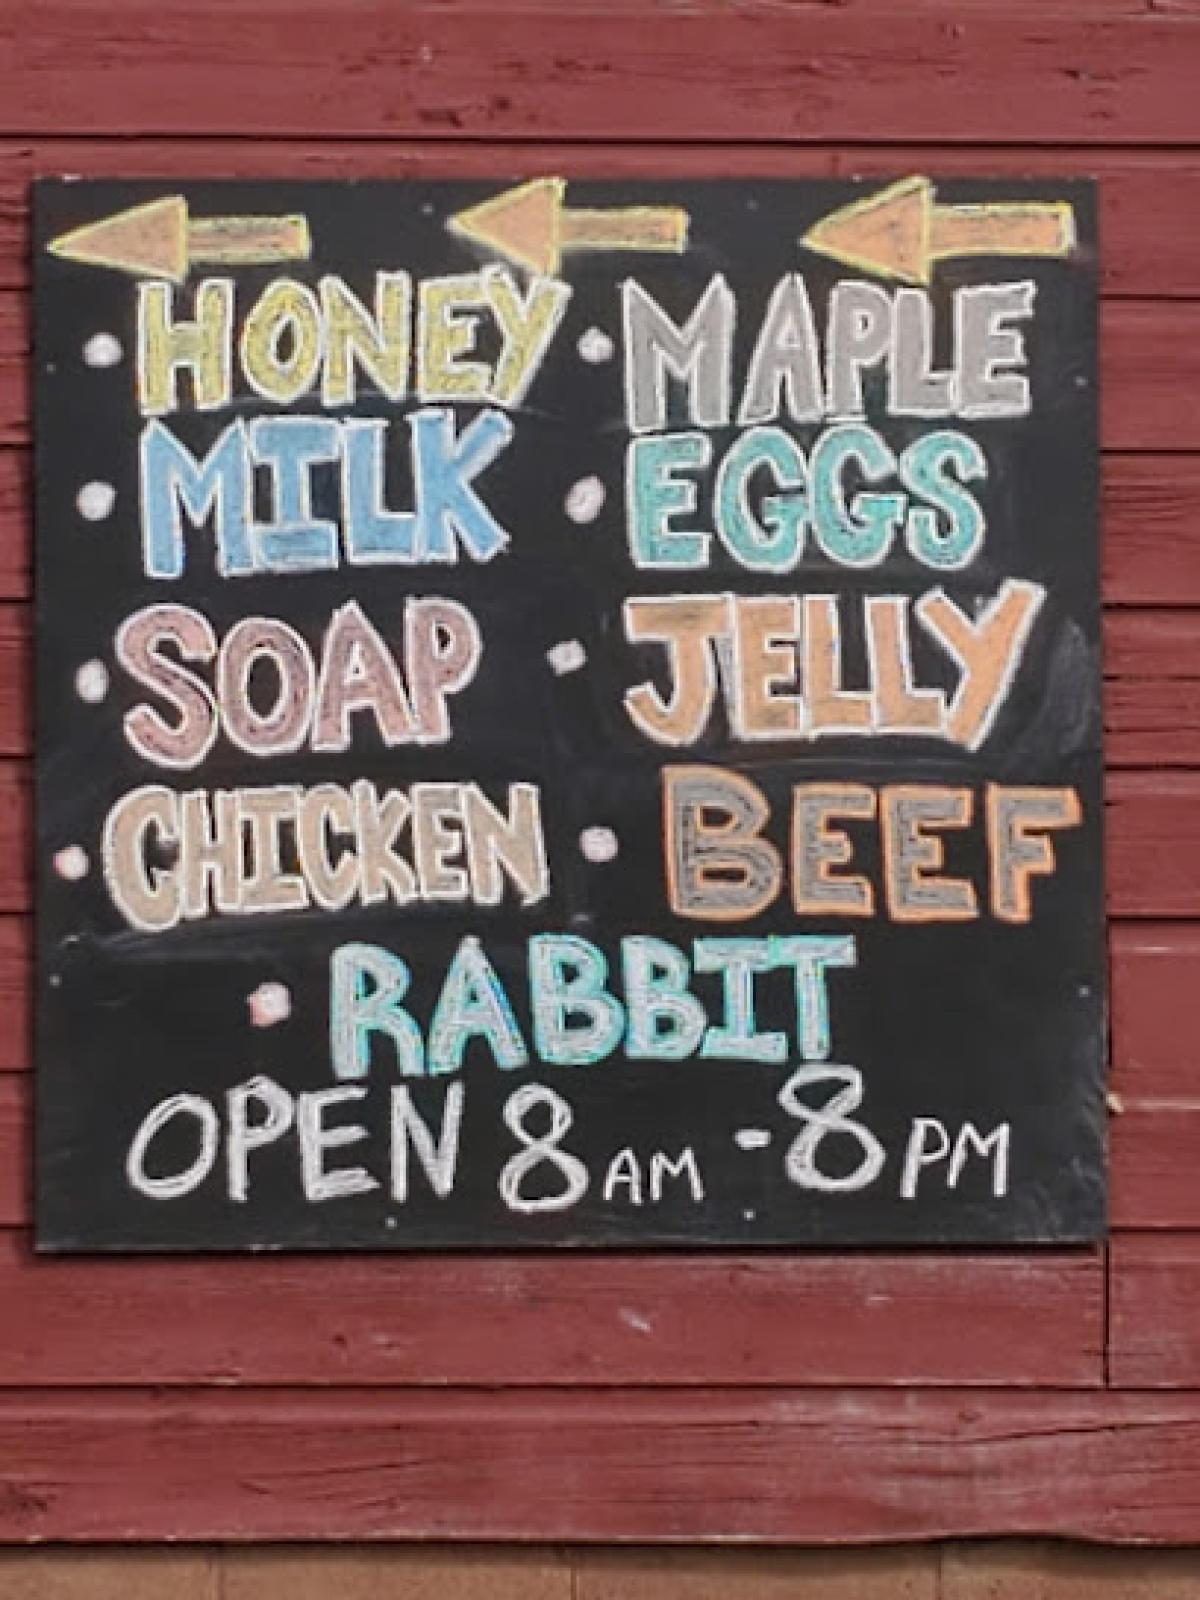 • HONEY • MAPLE
• MILK • EGGS
• SOAP • JELLY
• CHICKEN • BEEF
• RABBIT
OPEN 8 AM - 8 PM